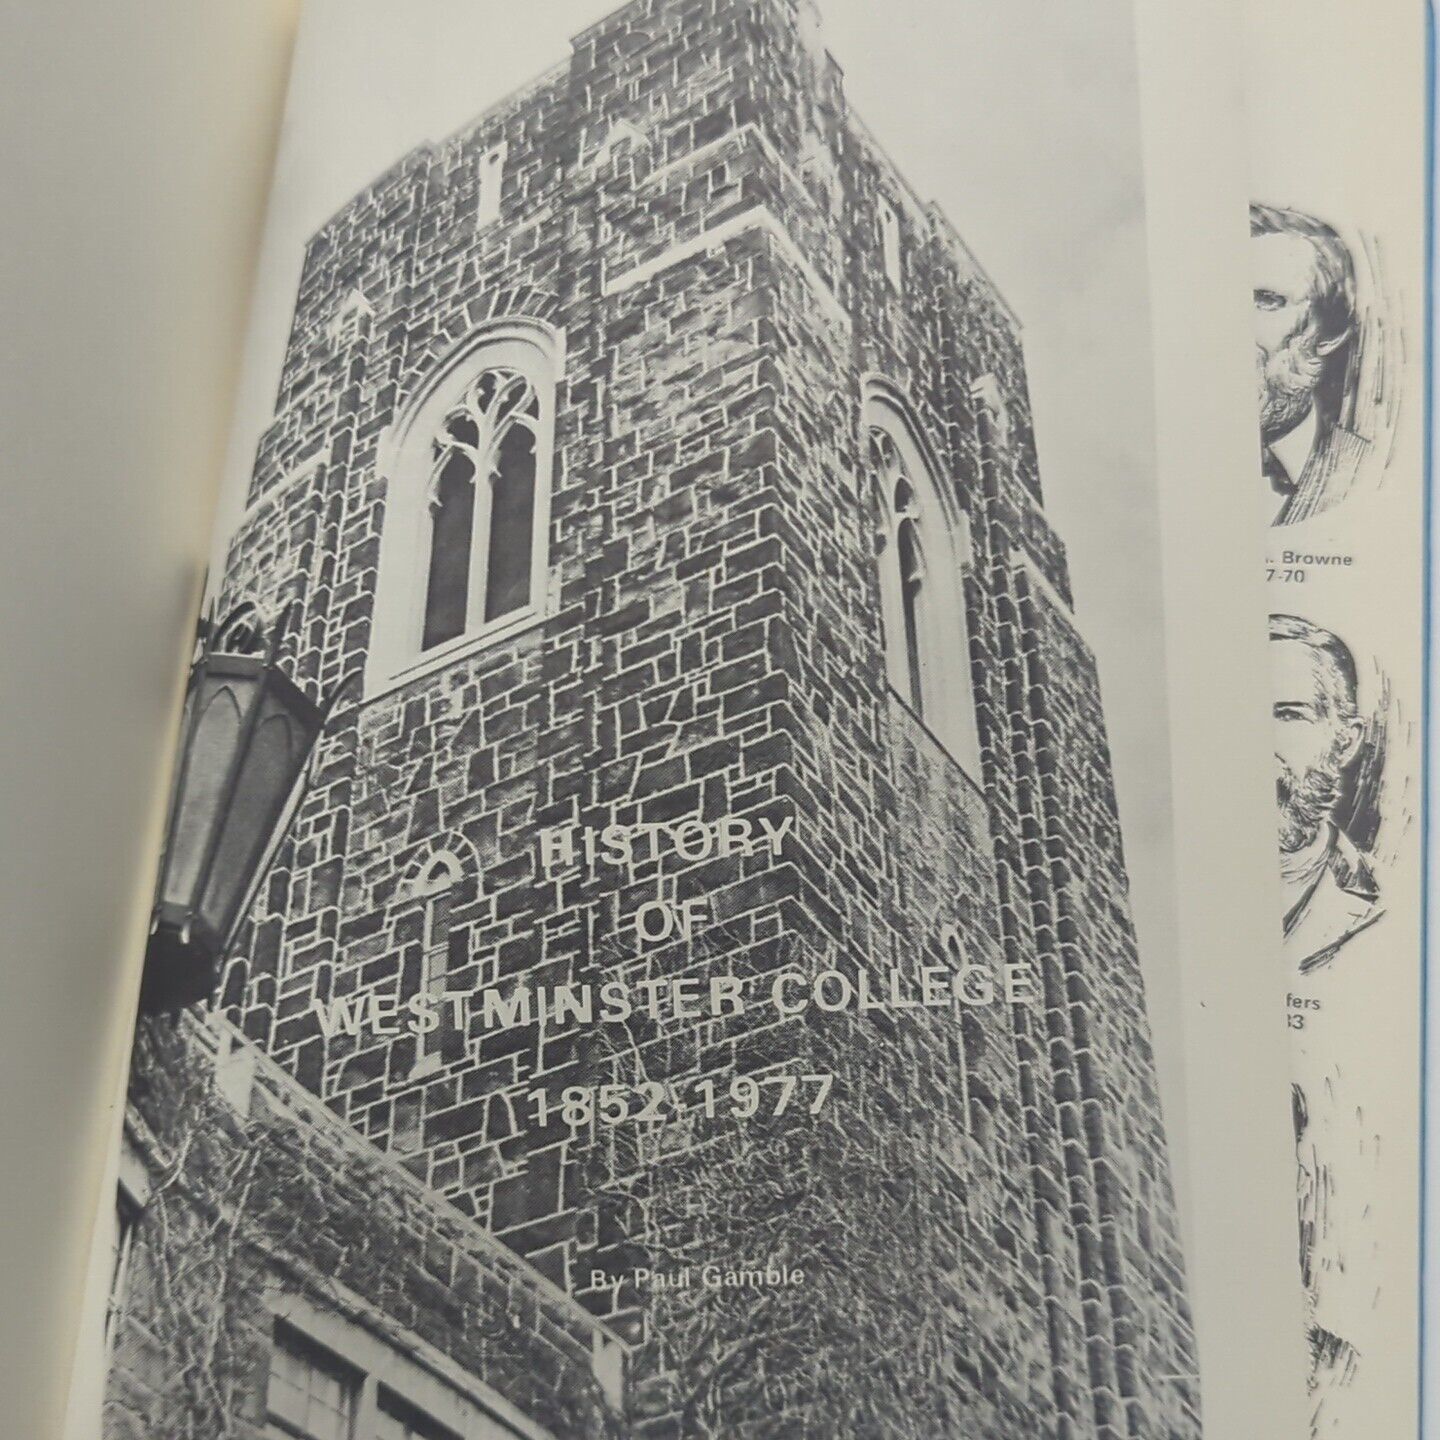 HISTORY
OF
WESTMINSTER COLLEGE
1852-1977
By Paul Gamble
. Browne
7-70
fers
33